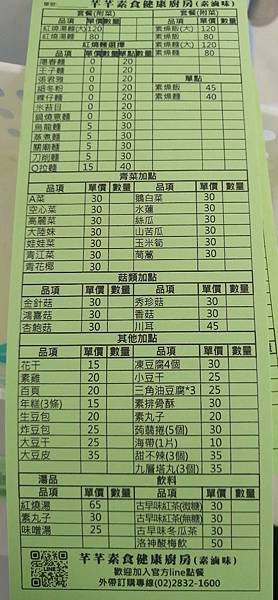 單號: 芊芊素食健康廚房(素滷味)
套餐(附菜) 單價 數量 套餐(附菜) 單價 數量
紅燒湯麵(大) 120 素燥飯(大) 120
紅燒湯麵 80 素燥飯 80
紅燒麵選擇 素燥麵(大) 120
品項 單價 數量 素燥麵 80
隱春麵 0 20
王子麵 0 20 單點
張君雅 0 20 品項 單價 數量
細冬粉 0 20 素燥飯 45
粿仔麵 0 20 素燥麵 40
米苔目 0 20
鍋燒意麵 0 30
烏龍麵 5 30
蒸煮麵 5 30
關廟麵 5 30
刀削麵 5 30
Q拉麵 15 40
青菜加點
品項 單價 數量 品項 單價 數量
A菜 30 鵝白菜 30
空心菜 30 水蓮 30
高麗菜 30 絲瓜 30
大陸妹 30 山苦瓜 30
娃娃菜 30 玉米筍 30
青江菜 30 茼蒿 30
青花椰 30
菇類加點
品項 單價 數量 品項 單價 數量
金針菇 30 秀珍菇 30
鴻喜菇 30 香菇 30
杏鮑菇 30 川耳 45
其他加點
品項 單價 數量 品項 單價 數量
花干 15 凍豆腐4個 30
素雞 20 小豆干 25
百頁 20 三角油豆腐*3 25
年糕(3條) 15 素排骨酥 30
生豆包 20 素丸子 20
炸豆包 25 蒟蒻捲(5個) 30
大豆干 25 海帶(1片) 10
大豆皮 35 甜不辣(3個) 35
九層塔丸(3個) 35
湯品 飲料
品項 單價 數量 品項 單價 數量
紅燒湯 65 古早味紅茶(微糖) 30
素丸子 30 古早味紅茶(無糖) 30
味噌湯 25 古早味冬瓜茶 30
洛神酸梅飲 50
芊芊素食健康廚房(素滷味)
歡迎加入官方line點餐
外帶訂購專線(02)2832-1600